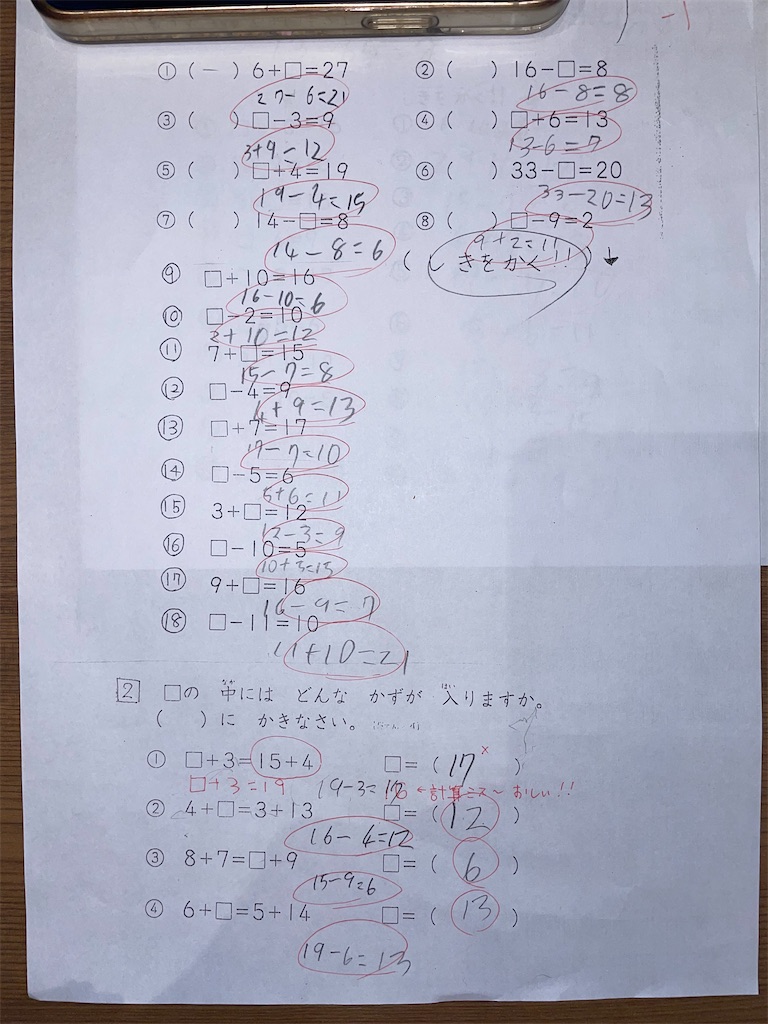 ① (－) 6+□=27 ② ( ) 16－□=8
27－6=21 16－8=8
③ ( ) □－3=9 ④ ( ) □+6=13
3+9=12 13－6=7
⑤ ( ) □+4=19 ⑥ ( ) 33－□=20
19－4=15 33－20=13
⑦ ( ) 14－□=8 ⑧ ( ) □－9=2
14－8=6 9+2=11
(しきをかく!!) ↓
⑨ □+10=16
16－10=6
⑩ □－2=10
2+10=12
⑪ 7+□=15
15－7=8
⑫ □－4=9
4+9=13
⑬ □+7=17
17－7=10
⑭ □－5=6
5+6=11
⑮ 3+□=12
12－3=9
⑯ □－10=5
⑰ 9+□=16
16－9=7
⑱ □－11=10
11+10=21
2 □の 中には どんな かずが 入りますか。
( )に かきなさい。
① □+3=15+4 □=( 17 ) ×
□+3=19 19－3= ←計算ミス～おしい!!
② 4+□=3+13 □=( 12 )
16－4=12
③ 8+7=□+9 □=( 6 )
15－9=6
④ 6+□=5+14 □=( 13 )
19－6=13